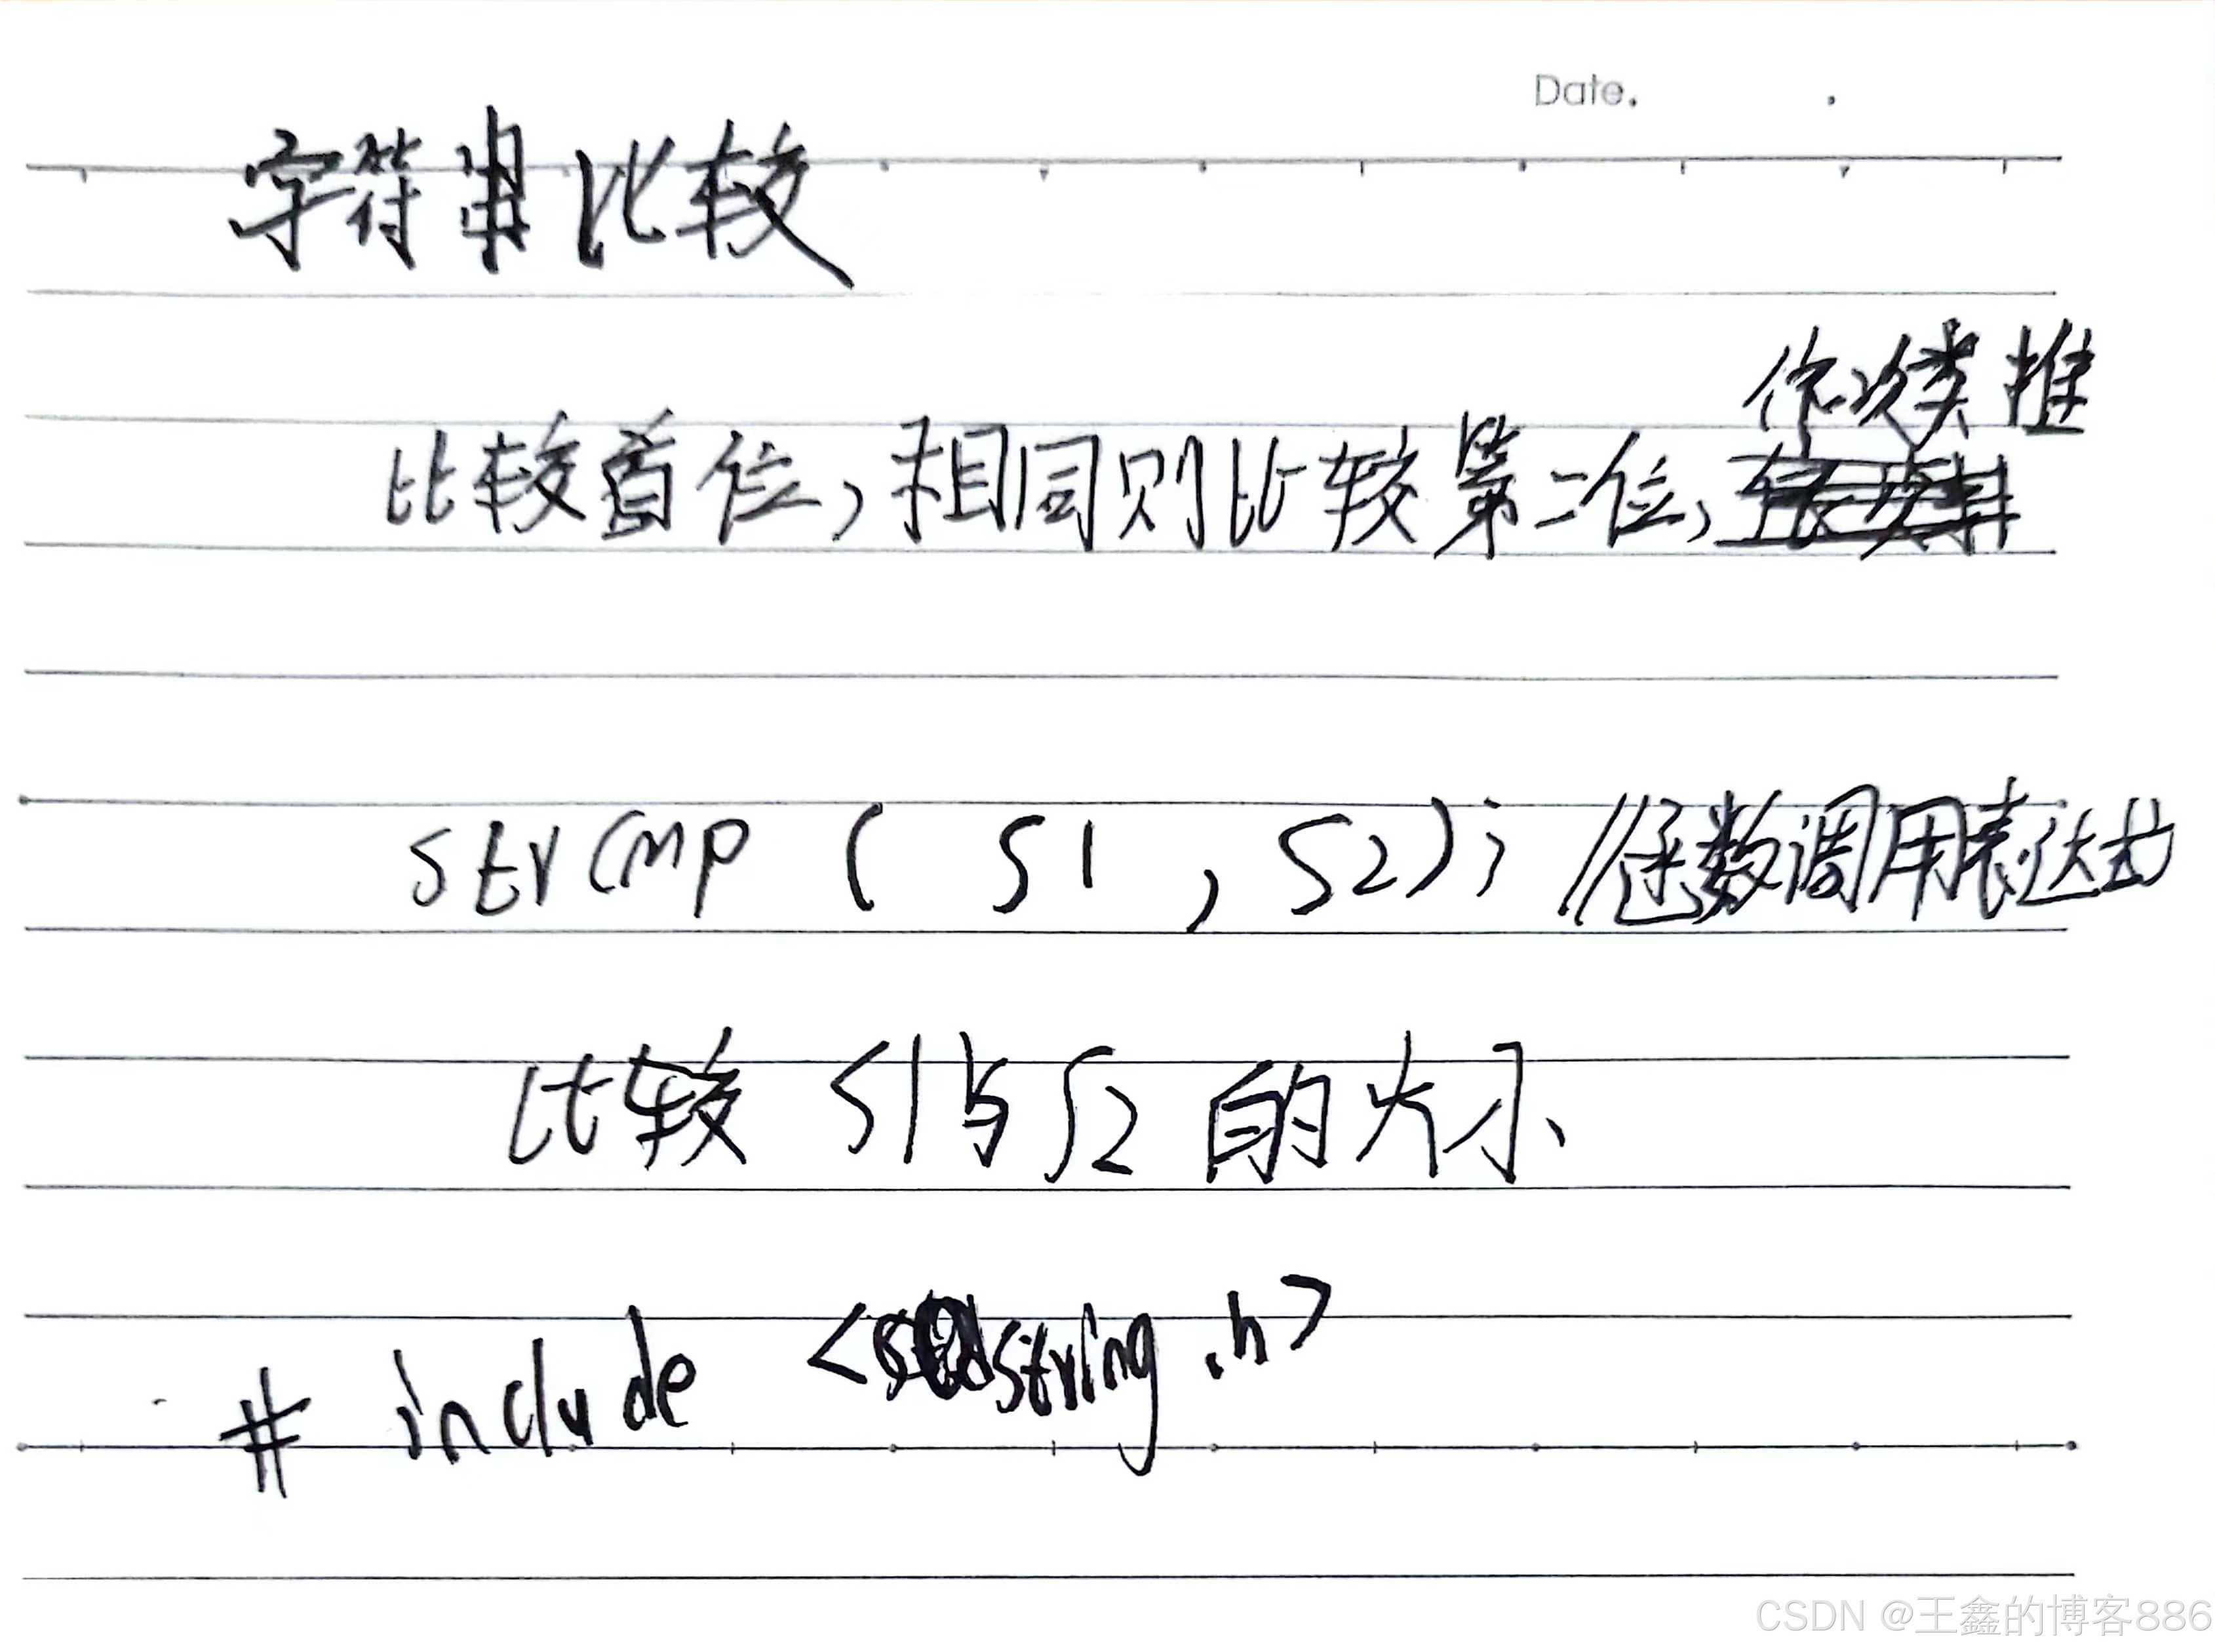 Date.
字符串比较
依次类推
比较首位，相同则比较第二位，
strcmp ( S1 , S2); //函数调用表达式
比较 S1与S2 的大小
# include <string.h>
CSDN @王鑫的博客886